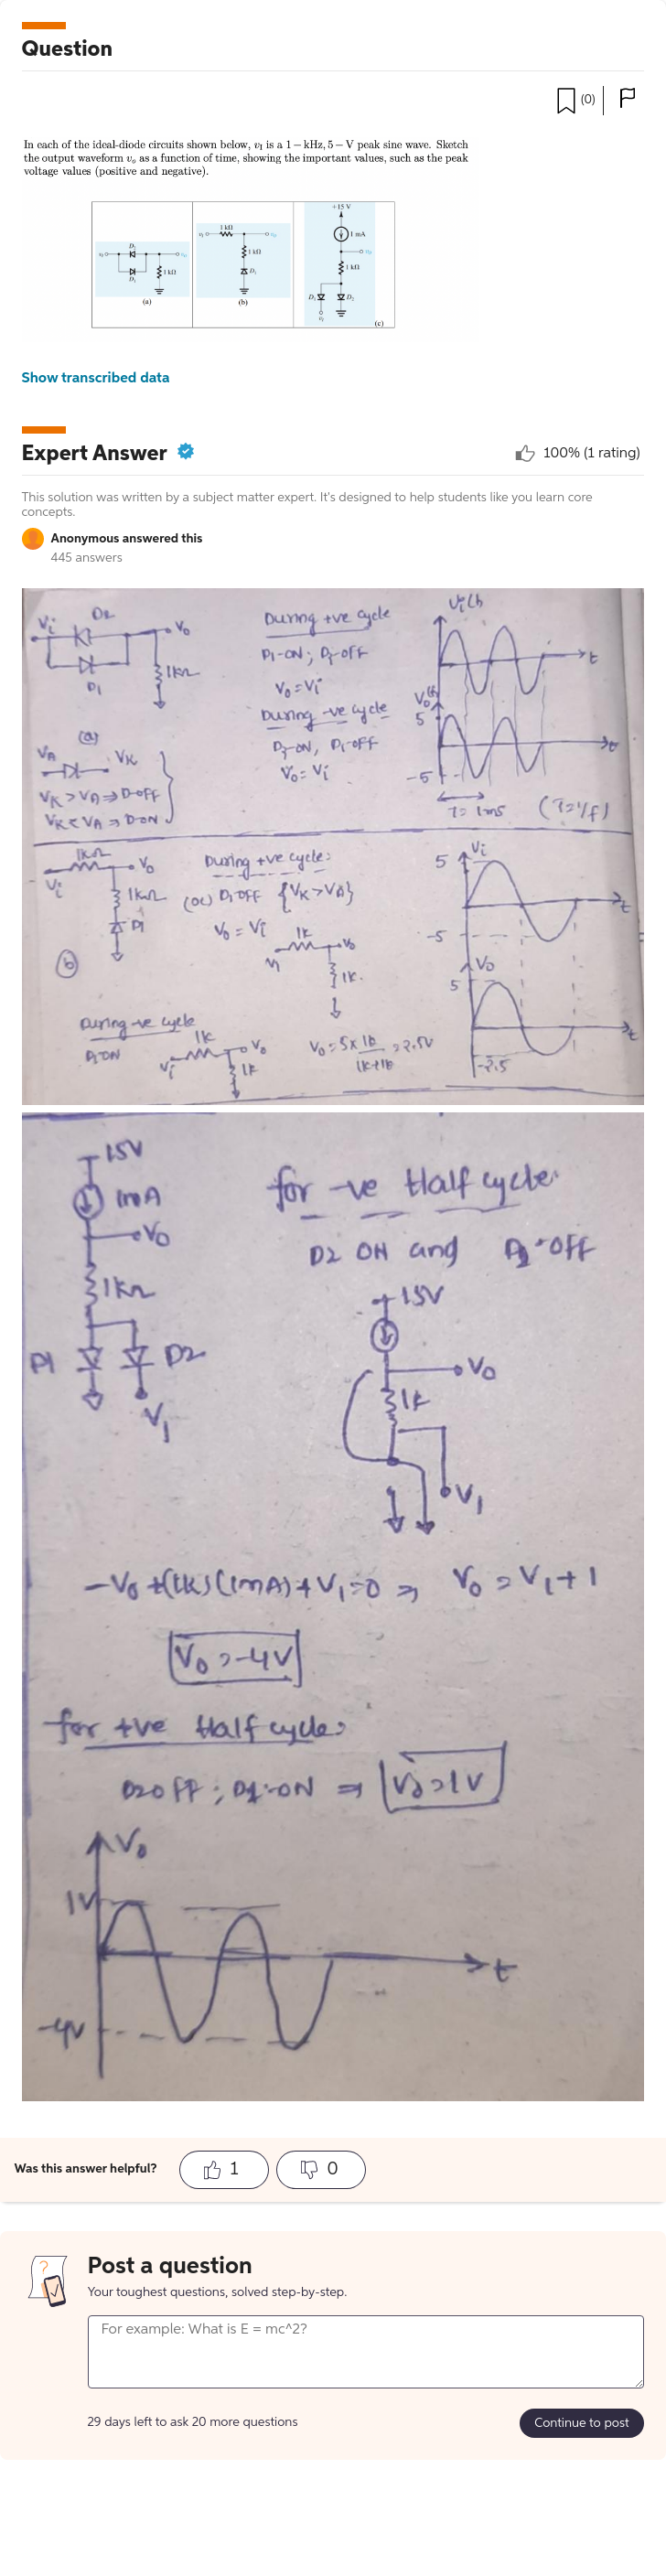 Question
(0)
In each of the ideal-diode circuits shown below, v_I is a 1 – kHz, 5 – V peak sine wave. Sketch
the output waveform v_o as a function of time, showing the important values, such as the peak
voltage values (positive and negative).
+15 V
1 kΩ
1 mA
1 kΩ
1 kΩ
D₁
D₁
D₂
1 kΩ
(a)
(b)
(c)
Show transcribed data
Expert Answer
100% (1 rating)
This solution was written by a subject matter expert. It's designed to help students like you learn core
concepts.
Anonymous answered this
445 answers
Vi D2 Vo
1kΩ
D1
(a)
VA VK
VK > VA ⇒ D-OFF
VK < VA ⇒ D-ON
During +ve cycle
D1-ON; D2-OFF
Vo = Vi
During -ve cycle
D2-ON, D1-OFF
Vo = Vi
Vi(t)
t
Vo(t)
5
-5
t
T = 1ms (T=1/f)
1kΩ
Vi Vo
1kΩ
D1
(b)
During +ve cycle:
(OC) D1 OFF {VK > VA}
Vo = Vi
1k
Vi Vo
1k.
5 Vi
t
-5
Vo
5
t
-2.5
During -ve cycle
D1 ON
1k
Vi Vo
1k
Vo = 5 x 1k / 1k+1k = 2.5V
15V
1mA
Vo
1kΩ
D1 D2
V1
for -ve Half cycle:
D2 ON and D1-OFF
15V
Vo
1k
V1
-Vo +(1k)(1mA)+V1=0 ⇒ Vo = V1+1
Vo = -4V
for +ve Half cycle:
D2 OFF; D1-ON ⇒ Vo = 1V
Vo
1V
t
-4V
Was this answer helpful?
1
0
Post a question
Your toughest questions, solved step-by-step.
For example: What is E = mc^2?
29 days left to ask 20 more questions
Continue to post